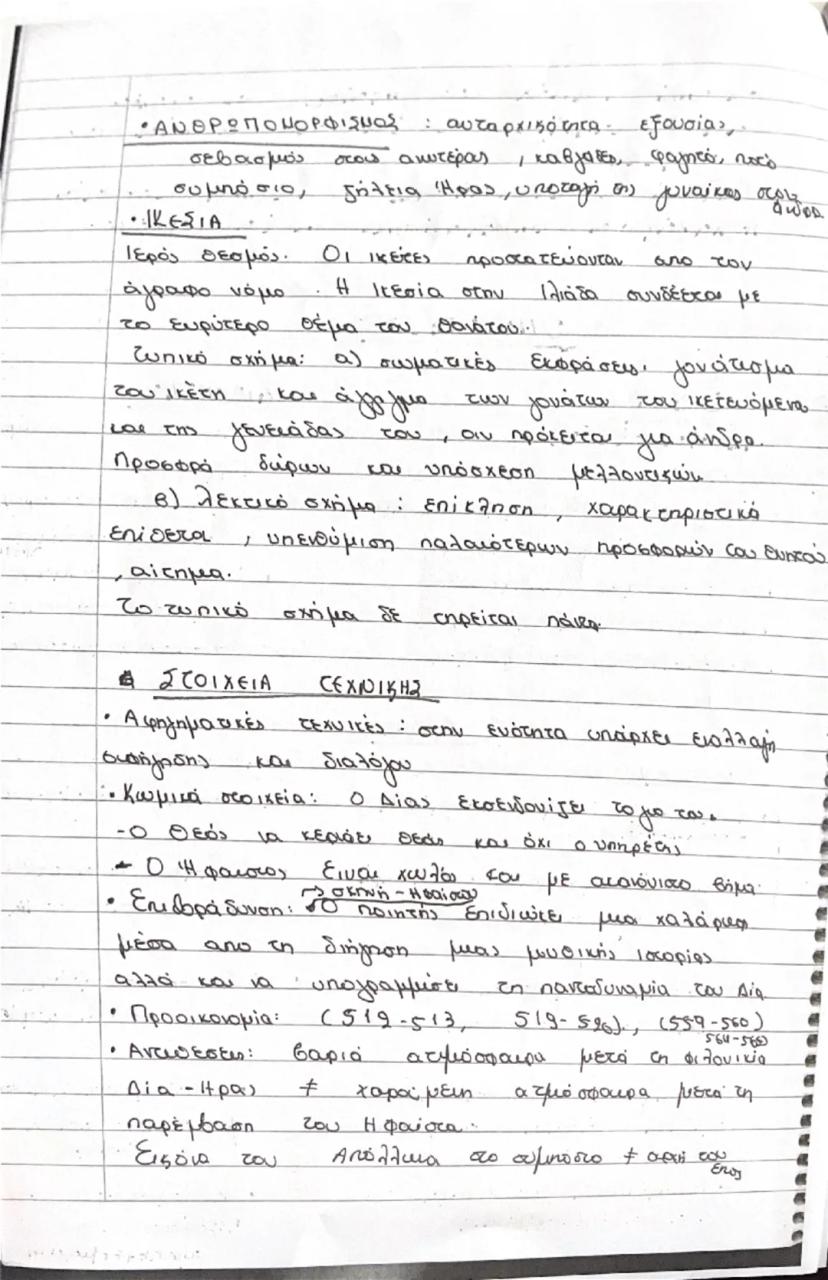 • ΑΝΘΡΩΠΟΜΟΡΦΙΣΜΟΣ : αυταρχικότητα εξουσίας,
σεβασμός στους ανωτέρας, καβγάδες, φαγητό, ποτό
συμπόσιο, ζήλεια Ήρας, υποταγή της γυναίκας στον
άνδρα
• ΙΚΕΣΙΑ
Ιερός θεσμός. Οι ικέτες προστατεύονται απο τον
άγραφο νόμο. Η Ικεσία στην Ιλιάδα συνδέεται με
το ευρύτερο θέμα του θανάτου.
Τυπικό σχήμα: α) σωματικές εκφράσεις, γονάτισμα
του ικέτη, και άγγιγμα των γονάτων του ικετευόμενα
και της γενειάδας του, αν πρόκειται για άνδρα.
Προσφρά δώρων και υπόσχεση μελλοντικών
β) λεκτικό σχήμα : επίκληση, χαρακτηριστικά
επίθετα, υπενθύμιση παλαιότερων προσφορών του θνητού
, αίτημα.
Το τυπικό σχήμα δε τηρείται πάντα.
ΣΤΟΙΧΕΙΑ ΤΕΧΝΙΚΗΣ
• Αφηγηματικές τεχνικές : στην ενότητα υπάρχει εναλλαγή
αφήγησης και διαλόγου
• Κωμικά στοιχεία: Ο Δίας το γιο του.
- Ο Θεός να κερνάει θεούς και όχι ο υπηρέτης
- Ο Ήφαιστος είναι χωλός και με ακανόνιστο βήμα
→ σκηνή - Ηφαίστου
• Επιβράδυνση: Ο ποιητής επιδιώκει μια χαλάρωση
μέσα απο τη διήγηση μιας μυθικής ιστορίας
αλλά και να υπογραμμίσει τη παντοδυναμία του Δία
• Προοικονομία: (512-513, 519-520), (559-560)
564-565)
• Αντιθέσεις: βαριά ατμόσφαιρα μετά τη φιλονικία
Δία - Ήρας ≠ χαρούμενη ατμόσφαιρα μετά τη
παρέμβαση του Ηφαίστα.
Εικόνα του Απόλλωνα στο συμπόσιο ≠ αρχή του
έπος